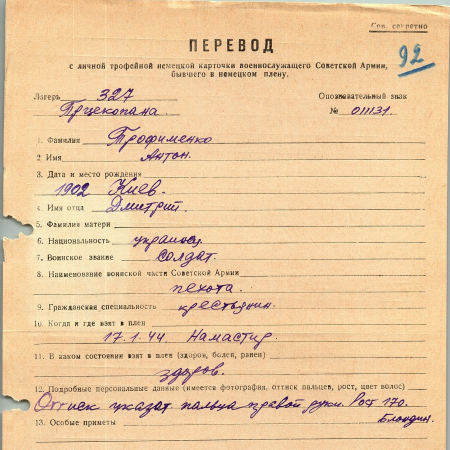 Сов. секретно
ПЕРЕВОД
92
с личной трофейной немецкой карточки военнослужащего Советской Армии,
бывшего в немецком плену.
Лагерь 327 Опознавательный знак
Прцекопана. № 011131.
1. Фамилия Трофименко
2 Имя Антон.
3. Дата и место рождения
1902 Киев.
4. Имя отца Дмитрий.
5. Фамилия матери
6. Национальность украинец
7. Воинское звание солдат.
8. Наименование воинской части Советской Армии
пехота.
9. Гражданская специальность крестьянин.
10. Когда и где взят в плен
17.1.44. Намастид.
11. В каком состоянии взят в плен (здоров, болен, ранен)
здоров.
12. Подробные персональные данные (имеется фотография, оттиск пальцев, рост, цвет волос)
Оттиск указат. пальца правой руки. Рост 170.
13. Особые приметы Блондин.